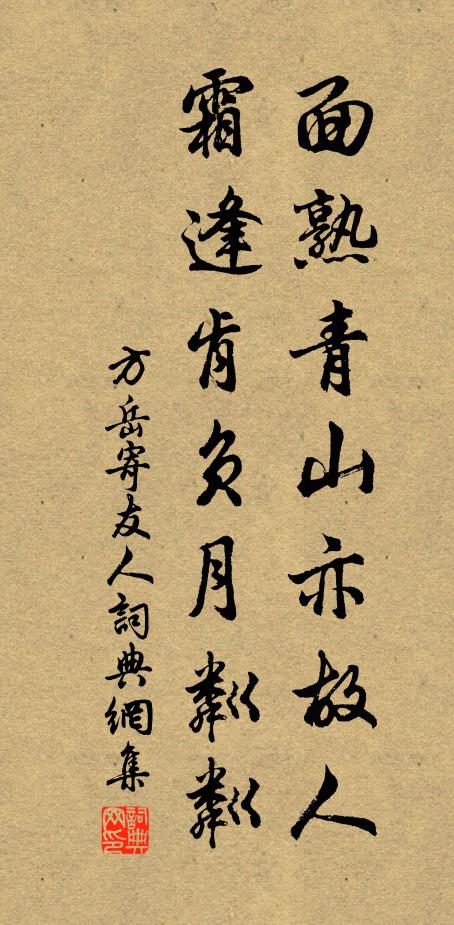 面熟青山亦故人
霜逢肯負月粼粼
方岳寄友人詞典網集
詞典网印